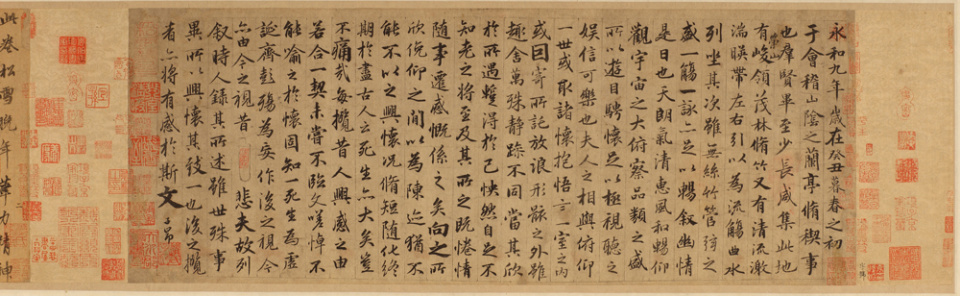 永和九年歲在癸丑暮春之初
于會稽山陰之蘭亭脩稧事
也群賢畢至少長咸集此地
有崇山峻領茂林脩竹又有清流激
湍暎帶左右引以為流觴曲水
列坐其次雖無絲竹管弦之
盛一觴一詠亦足以暢敘幽情
是日也天朗氣清惠風和暢仰
觀宇宙之大俯察品類之盛
所以遊目騁懷足以極視聽之
娛信可樂也夫人之相與俯仰
一世或取諸懷抱悟言一室之內
或因寄所託放浪形骸之外雖
趣舍萬殊靜躁不同當其欣
於所遇蹔得於己怏然自足不
知老之將至及其所之既惓情
隨事遷感慨係之矣向之所
欣俛仰之閒以為陳迹猶不
能不以之興懷況脩短隨化終
期於盡古人云死生亦大矣豈
不痛哉每攬昔人興感之由
若合一契未嘗不臨文嗟悼不
能喻之於懷固知死生為虛
誕齊彭殤為妄作後之視今
亦由今之視昔悲夫故列
敘時人錄其所述雖世殊事
異所以興懷其致一也後之攬
者亦將有感於斯文
此卷松雪晚年筆力精神